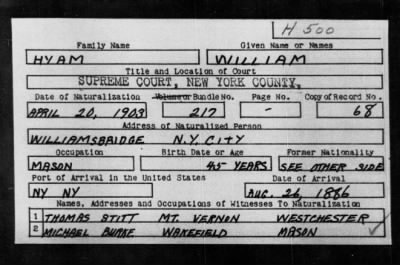 H 500
Family Name Given Name or Names
HYAM WILLIAM
Title and Location of Court
SUPREME COURT, NEW YORK COUNTY,
Date of Naturalization Volume or Bundle No. Page No. Copy of Record No.
APRIL 20, 1903 217 - 68
Address of Naturalized Person
WILLIAMSBRIDGE N.Y. CITY
Occupation Birth Date or Age Former Nationality
MASON 45 YEARS SEE OTHER SIDE
Port of Arrival in the United States Date of Arrival
NY NY AUG. 26, 1886
Names, Addresses and Occupations of Witnesses To Naturalization
1 THOMAS STITT MT. VERNON WESTCHESTER
2 MICHAEL BURKE WAKEFIELD MASON